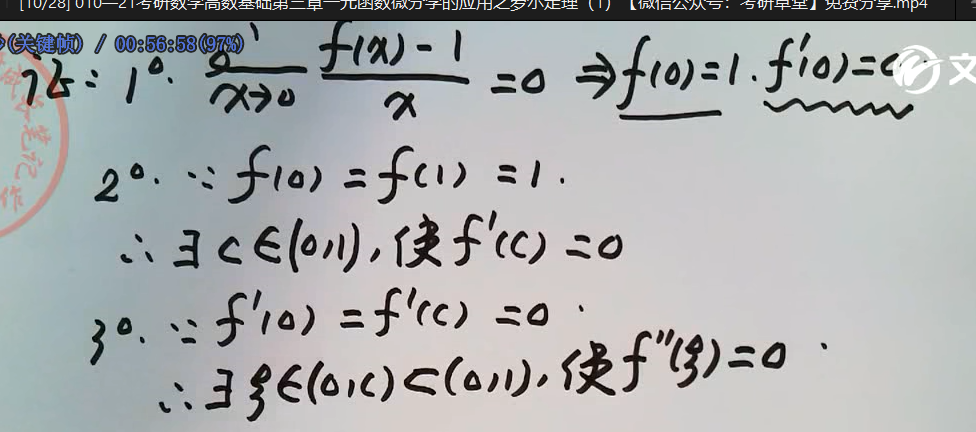 [10/28] 010—21考研数学高数基础第三章一元函数微分学的应用之罗尔定理（1）【微信公众号：考研草堂】免费分享.mp4
(关键帧) / 00:56:58(97%)
证: 1°. x→0 f(x)-1 / x =0 ⇒ f(0)=1. f'(0)=0
文
2°. ∵ f(0) = f(1) = 1.
∴ ∃ c∈(0,1), 使 f'(c) = 0
3°. ∵ f'(0) = f'(c) = 0.
∴ ∃ ξ∈(0,c)⊂(0,1), 使 f''(ξ)=0.
笔记